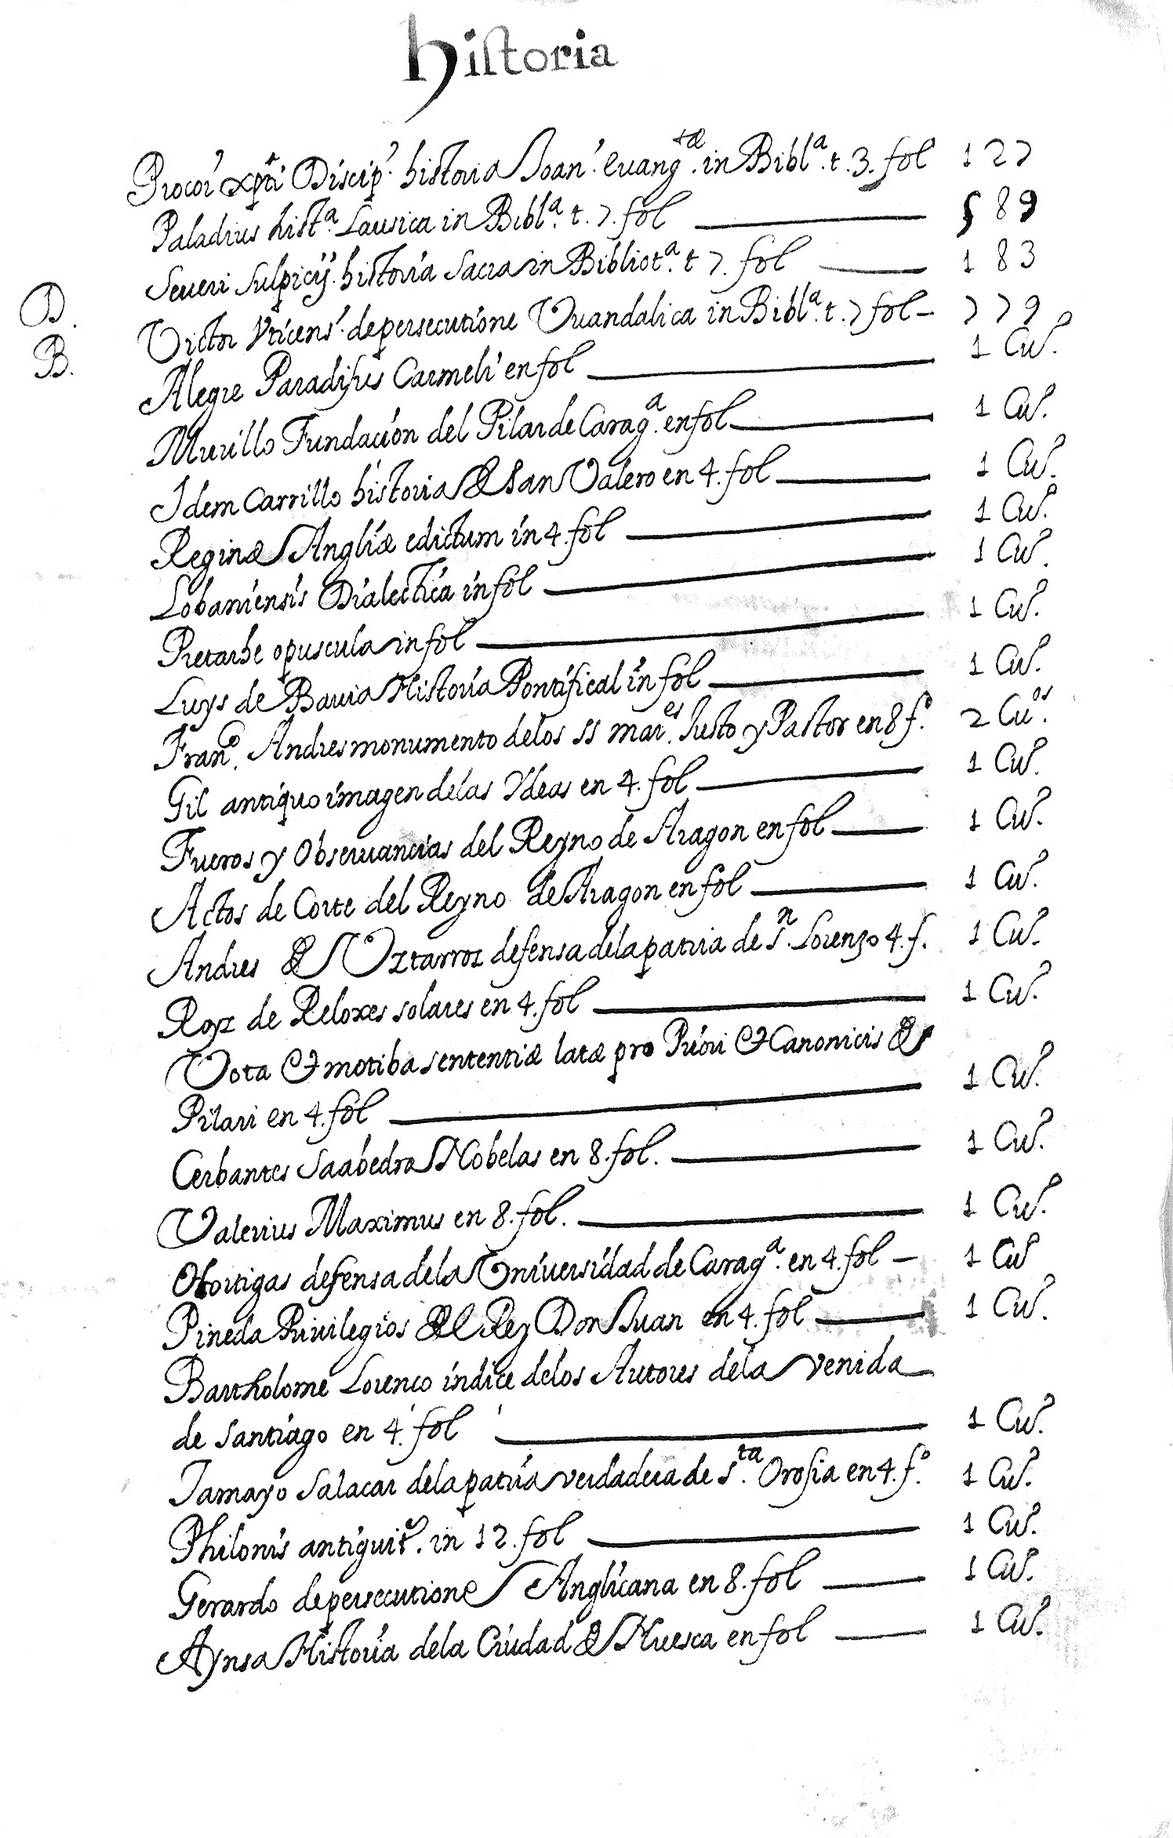 Historia
Procor' xp̄ti Discip' historia Joan' euang.tæ in Bibl.a t. 3. fol 127
Paladius hist.a Lausica in Bibl.a t. 7. fol 589
Seueri Sulpicij historia Sacra in Bibliot.a t 7. fol 183
D. Victor Vticens' de persecutione Vuandalica in Bibl.a t. 7 fol 779
B. Alegre Paradisus Carmeli en fol 1 Cu.o
Murillo Fundación del Pilar de Carag.a en fol 1 Cu.o
Idem Carrillo historia de San Valero en 4. fol 1 Cu.o
Reginæ Angliæ edictum in 4. fol 1 Cu.o
Lobaniensis Dialectica in fol 1 Cu.o
opuscula in fol 1 Cu.o
Luys de Bauia Historia Pontifical in fol 1 Cu.o
Fran.co Andres monumento delos ss mar.es Justo y Pastor en 8 f.o 2 Cu.os
Gil antiquo imagen delas Ydeas en 4. fol 1 Cu.o
Fueros y Obseruancias del Reyno de Aragon en fol 1 Cu.o
Actos de Corte del Reyno de Aragon en fol 1 Cu.o
Andres de Vztarroz defensa dela patria de S.n Lorenzo 4. f. 1 Cu.o
Royz de Reloxes solares en 4. fol 1 Cu.o
Vota et motiba sententiæ latæ pro Priori et Canonicis de
Pilari en 4. fol 1 Cu.o
Cerbantes Saabedra Nobelas en 8. fol. 1 Cu.o
Valerius Maximus en 8. fol. 1 Cu.o
Hortigas defensa dela Vniuersidad de Carag.a en 4. fol 1 Cu.o
Pineda Priuilegios del Rey Don Juan en 4. fol 1 Cu.o
Bartholome Lorenco indice delos Autores dela venida
de Santiago en 4. fol 1 Cu.o
Tamayo Salacar dela patria verdadera de S.ta Orosia en 4. f.o 1 Cu.o
Philonis antiquit. in 12. fol 1 Cu.o
Gerardo de persecutione Anglicana en 8. fol 1 Cu.o
Aynsa Historia dela Ciudad de Huesca en fol 1 Cu.o